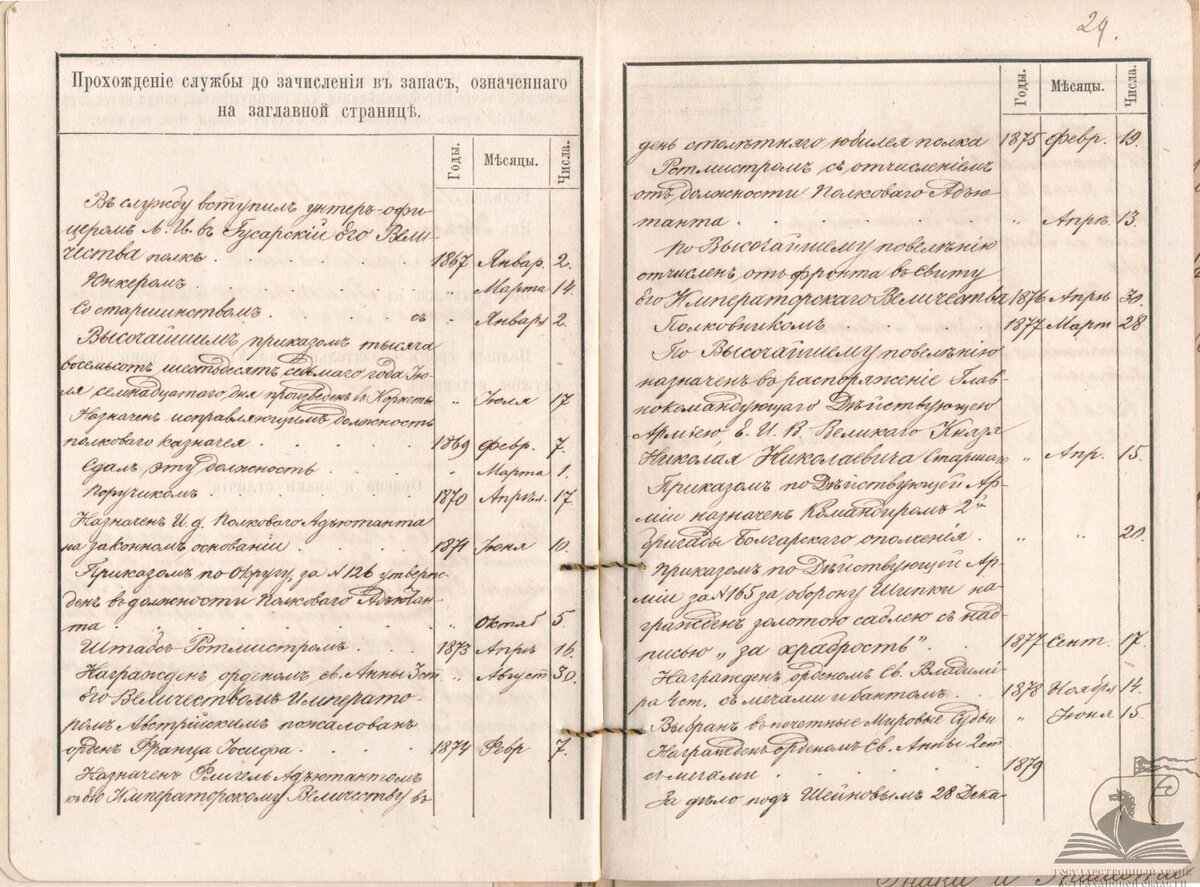 Прохожденіе службы до зачисленія въ запасъ, означеннаго
на заглавной страницѣ.
Годы. Мѣсяцы. Числа.
Въ службу вступилъ унтеръ-офи-
церомъ Л. Гв. въ Гусарскій Его Вели-
чества полкъ. 1867 Январ. 2.
Юнкеромъ " Марта 14.
Со старшинствомъ. съ " Января 2.
Высочайшимъ приказомъ тысяча
восемьсотъ шестьдесятъ седьмаго года Iю-
ля семнадцатаго дня произведенъ въ Корнеты " Июля 17
Назначенъ исправляющимъ должность
полковаго казначея 1869 февр. 7.
Сдалъ эту должность " Марта 1.
Поручикомъ 1870 Апрѣл. 17
Назначенъ И. д. Полковаго Адъютанта
на законномъ основаніи 1871 Іюня 10.
Приказомъ по Округу за № 126 утверж-
денъ въ должности Полковаго Адъютан-
та " Октяб 5.
Штабсъ Ротмистромъ. 1873 Апрѣ 16.
Награжденъ орденомъ св. Анны 3 ст. " Август 30.
Его Величествомъ Императо-
ромъ Австрійскимъ пожалованъ
орденъ Франца Іосифа 1874 Февр 7.
Назначенъ Флигель Адъютантомъ
къ Его Императорскому Величеству въ
29.
Годы. Мѣсяцы. Числа.
день столѣтняго юбилея полка 1875 февр. 19.
Ротмистромъ съ отчисленіемъ
отъ должности Полковаго Адъю-
танта " Апрѣ. 13.
По Высочайшему повелѣнію
отчисленъ отъ фронта въ Свиту
Его Императорскаго Величества 1876 Апрѣ 30.
Полковникомъ 1877 Март 28
По Высочайшему повелѣнію
назначенъ въ распоряженіе Глав-
нокомандующаго Дѣйствующею
Арміею Е. И. В. Великаго Князя
Николая Николаевича Старшаго " Апр. 15.
Приказомъ по Дѣйствующей Ар-
міи назначенъ Командиромъ 2й
бригады Болгарскаго ополченія " " 20.
Приказомъ по Дѣйствующей Ар-
міи за № 165 за оборону Шипки на-
гражденъ золотою саблею съ над-
писью „за храбрость" 1877 Сент. 17.
Награжденъ орденомъ Св. Владимі-
ра 4 ст. съ мечами и бантомъ 1878 Ноября 14.
Выбранъ въ почетные Мировые Судьи " Июня 15.
Награжденъ орденомъ Св. Анны 2 ст
съ мечами 1879
За дѣло подъ Шейновымъ 28 Дека-
ГОСУДАРСТВЕННЫЙ АРХИВ